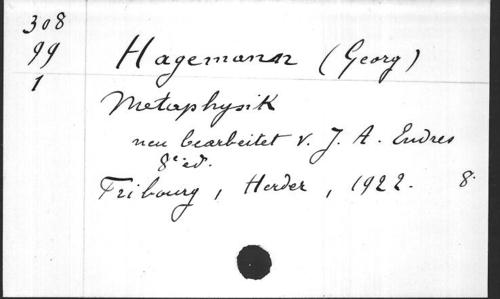 308
99
1
Hagemann (Georg)
Metaphysik
neu bearbeitet v. J. A. Endres
8e ed.
Fribourg, Herder, 1922. 8.